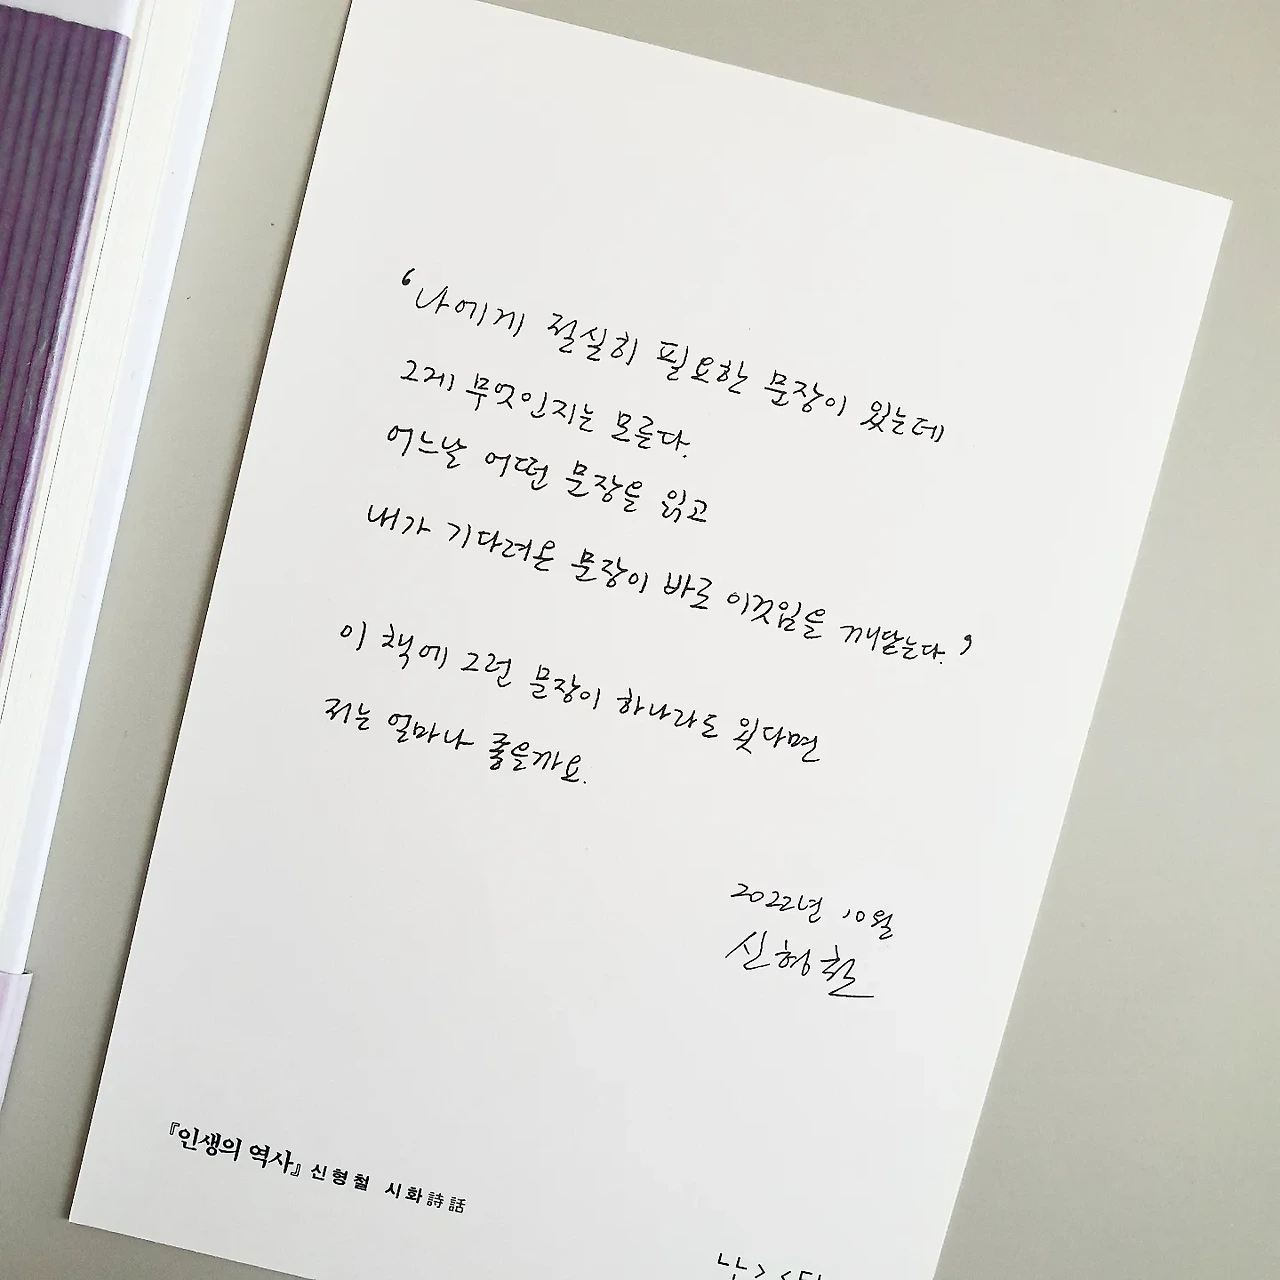 ‘나에게 절실히 필요한 문장이 있는데
그게 무엇인지는 모른다.
어느날 어떤 문장을 읽고
내가 기다려온 문장이 바로 이것임을 깨닫는다.’
이 책에 그런 문장이 하나라도 있다면
저는 얼마나 좋을까요.
2022년 10월
신형철
『인생의 역사』 신형철 시화詩話